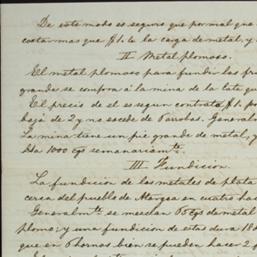 De este modo es seguro que por mal que
costar mas que $1. la carga de metal, y
II Metal plomoso.
El metal plomoso para fundir las fri
grande se compra á la mina de la Cata que
El precio de él es segun contrata $1. po
baja de 2 y no escede de 7 arrobas. General
La mina tiene un pié grande de metal, y
1000 cgs semanariamte.
III Fundicion
La fundicion de los metales de plata
cerca del pueblo de en cuatro ha
Generalmte se mezclan cgs de metal
plomo; y una fundicion de estas dura 18 d
que en 7 hornos bien se pueden hacer 2